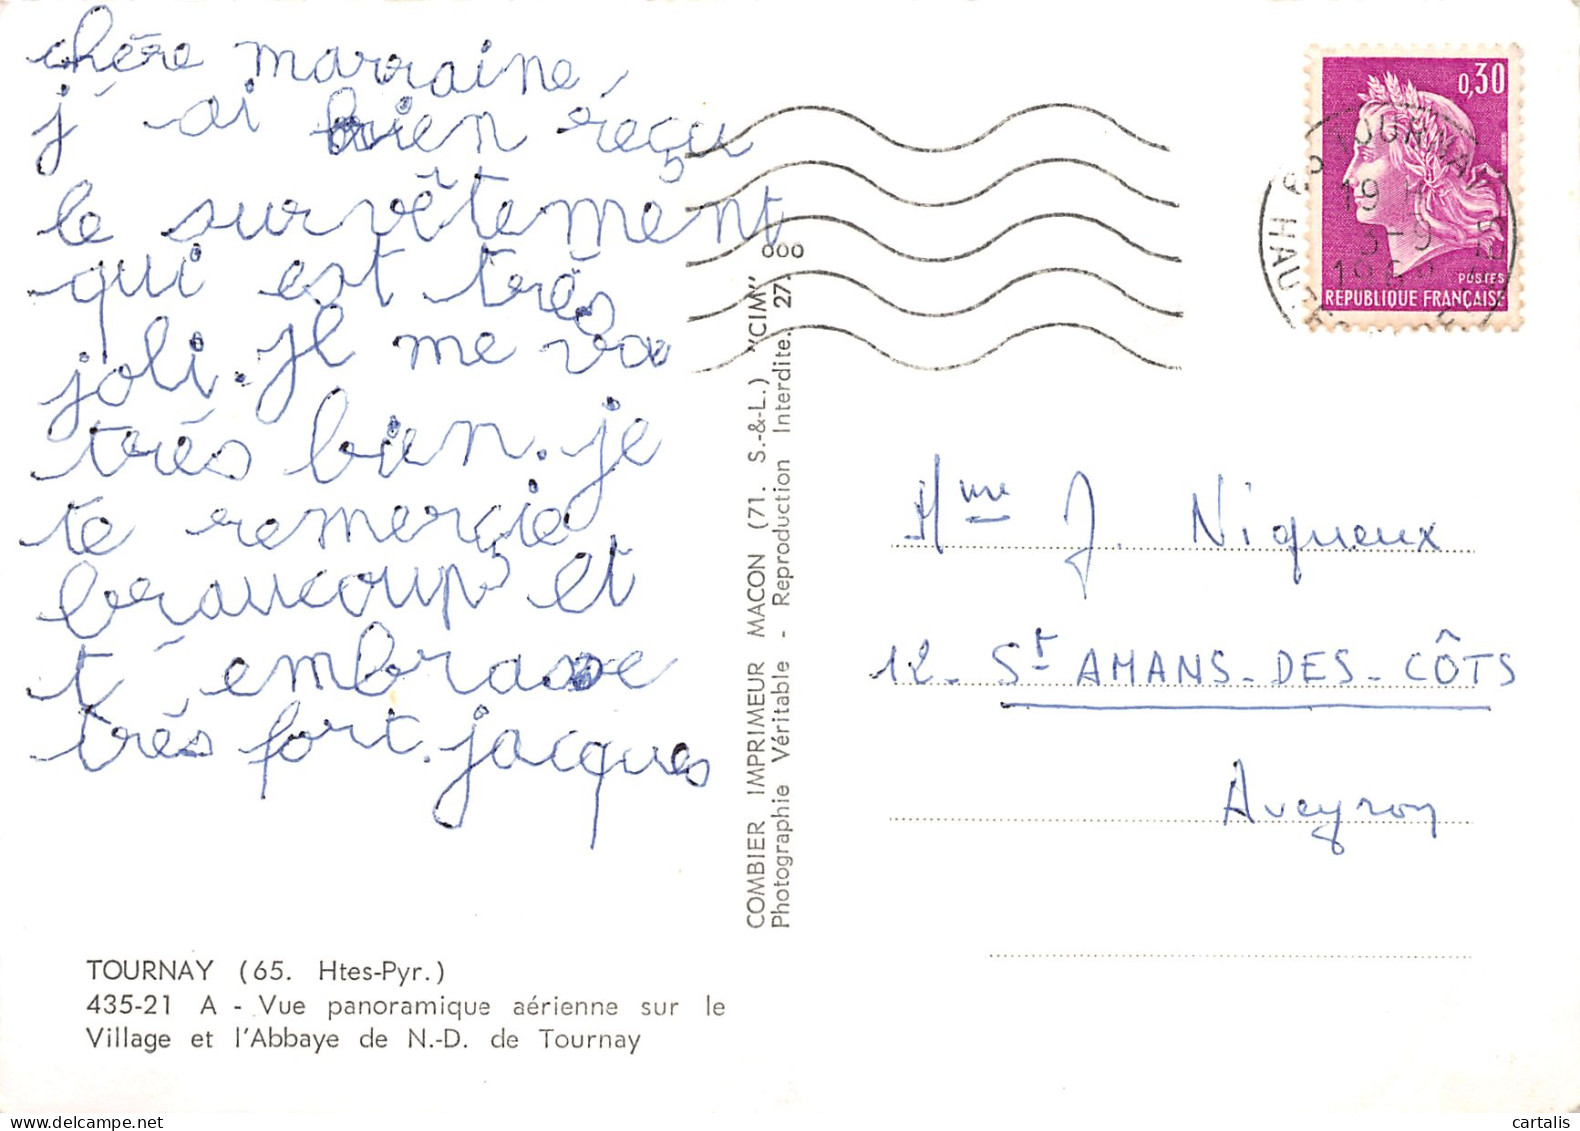 chère marraine,
j'ai bien reçu
le survêtement
qui est très
joli. Il me va
très bien. je
te remerçie
beaucoup et
t'embrasse
très fort. jacques
TOURNAY (65. Htes-Pyr.)
435-21 A - Vue panoramique aérienne sur le
Village et l'Abbaye de N.-D. de Tournay
COMBIER IMPRIMEUR MACON (71. S.-&-L.) "CIM"
Photographie Véritable - Reproduction Interdite. 27.
000
0,30
POSTES
RÉPUBLIQUE FRANÇAISE
65 TOURNAY
19 H
3-9
Mme J. Niqueux
12 - St AMANS-DES-CÔTS
Aveyron
cartalis